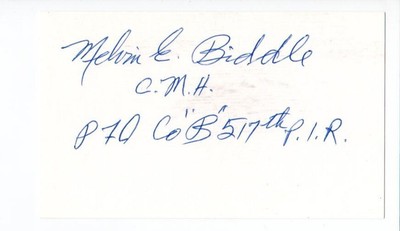 Melvin E. Biddle
C.M.H.
PFC Co "B" 517th P.I.R.